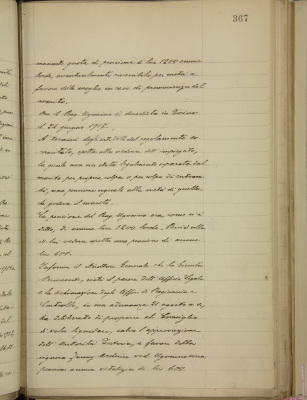 367
nuale quota di pensione di lire 1200 annue
lorde, eventualmente riversibile, per metà a
favore della moglie in caso di premorienza del
marito.
Ora il Rag. Ugonino è deceduto in Torino
il 26 giugno
A termini degli art. del regolamento
spetta alla vedova dell'impiegato,
la quale non sia stata legalmente separata dal
marito per propria colpa o per colpa di entram-
bi, una pensione eguale alla metà di quella
che godeva il marito.
La pensione del Rag. Ugonino era, come si è
detto, di annue lire 1200 lorde. Perciò alla
di lui vedova spetta una pensione di annue
lire 600.
Informa il Direttore Generale che la Giunta
visto il parere dell'Ufficio Legale
e la dichiarazione degli Uffici di Ragioneria e
Controllo, in sua adunanza 21 agosto
ha deliberato di proporre al Consiglio
di voler liquidare, salva l'approvazione
dell'Autorità Tutoria, a favore della
signora ved. Ugonino una
pensione annua vitalizia di lire 600.